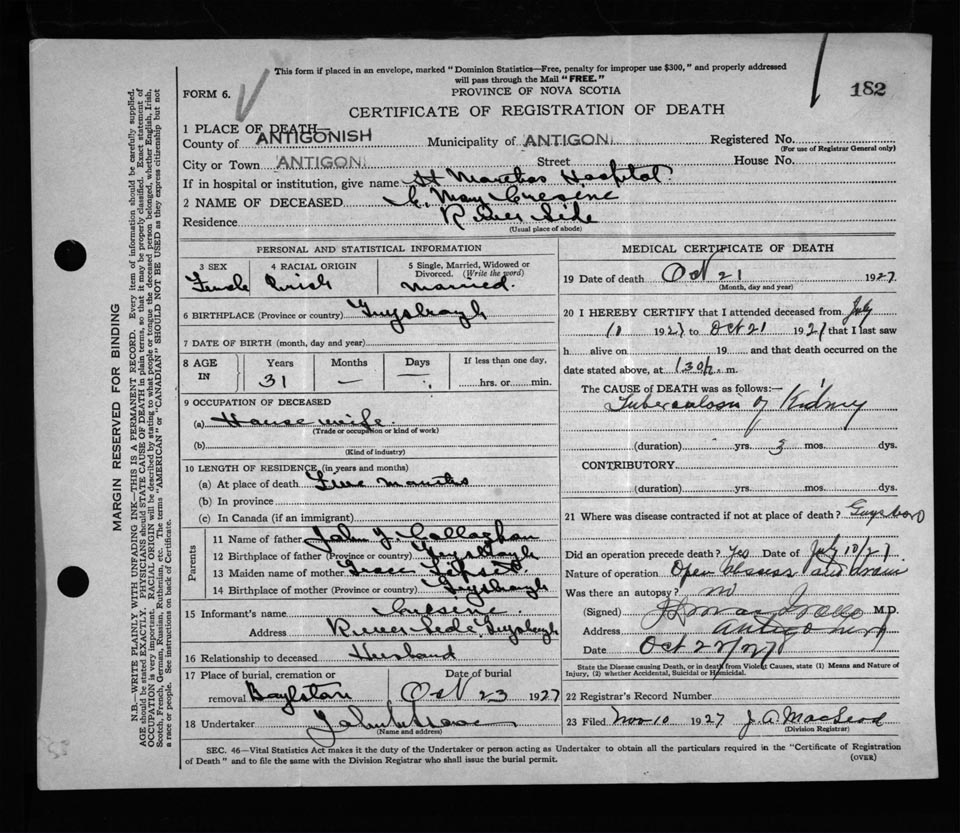 This form if placed in an envelope, marked "Dominion Statistics—Free, penalty for improper use $300," and properly addressed
will pass through the Mail "FREE."
182
FORM 6.
PROVINCE OF NOVA SCOTIA
CERTIFICATE OF REGISTRATION OF DEATH
1 PLACE OF DEATH—
County of ANTIGONISH Municipality of ANTIGON Registered No.
(For use of Registrar General only)
City or Town ANTIGON Street House No.
If in hospital or institution, give name St Marthas Hospital
2 NAME OF DECEASED May
Residence River Side
(Usual place of abode)
PERSONAL AND STATISTICAL INFORMATION
3 SEX 4 RACIAL ORIGIN 5 Single, Married, Widowed or Divorced. (Write the word)
Female Irish Married.
6 BIRTHPLACE (Province or country) Guysborough
7 DATE OF BIRTH (month, day and year)
8 AGE IN Years Months Days If less than one day,
31 — — hrs. or min.
9 OCCUPATION OF DECEASED
(a) Housewife.
(Trade or occupation or kind of work)
(b)
(Kind of industry)
10 LENGTH OF RESIDENCE (in years and months)
(a) At place of death months
(b) In province
(c) In Canada (if an immigrant)
Parents
11 Name of father John J. Callaghan
12 Birthplace of father (Province or country) Guysborough
13 Maiden name of mother Grace
14 Birthplace of mother (Province or country) Guysborough
15 Informant's name
Address River Side, Guysborough
16 Relationship to deceased Husband
17 Place of burial, cremation or removal Boylston Date of burial Oct 23 1927
18 Undertaker John
(Name and address)
MEDICAL CERTIFICATE OF DEATH
19 Date of death Oct 21 1927
(Month, day and year)
20 I HEREBY CERTIFY that I attended deceased from July
10 1927 to Oct 21 1927 that I last saw
h alive on 19 and that death occurred on the
date stated above, at 1.30 m.
The CAUSE OF DEATH was as follows:—
Tuberculosis of Kidney
(duration) yrs. 3 mos. dys.
CONTRIBUTORY
(duration) yrs. mos. dys.
21 Where was disease contracted if not at place of death? Guysboro
Did an operation precede death? Yes Date of July 10/27
Nature of operation Open abscess and drain
Was there an autopsy? no
(Signed) M.D.
Address Antigonish
Date Oct 22/27
State the Disease causing Death, or in death from Violent Causes, state (1) Means and Nature of
Injury, (2) whether Accidental, Suicidal or Homicidal.
22 Registrar's Record Number
23 Filed Nov 10 1927 J. A. MacLeod
(Division Registrar)
SEC. 46—Vital Statistics Act makes it the duty of the Undertaker or person acting as Undertaker to obtain all the particulars required in the "Certificate of Registration
of Death" and to file the same with the Division Registrar who shall issue the burial permit.
(OVER)
MARGIN RESERVED FOR BINDING
N.B.—WRITE PLAINLY WITH UNFADING INK—THIS IS A PERMANENT RECORD. Every item of information should be carefully supplied.
AGE should be stated EXACTLY. PHYSICIANS should STATE CAUSE OF DEATH in plain terms, so that it may be properly classified. Exact statement of
OCCUPATION is very important. RACIAL ORIGIN will be described by stating to what people or tongue the deceased person belonged, whether English, Irish,
Scotch, French, German, Russian, Ruthenian, etc. The terms "AMERICAN" or "CANADIAN" SHOULD NOT BE USED as they express citizenship but not
a race or people. See instructions on back of Certificate.